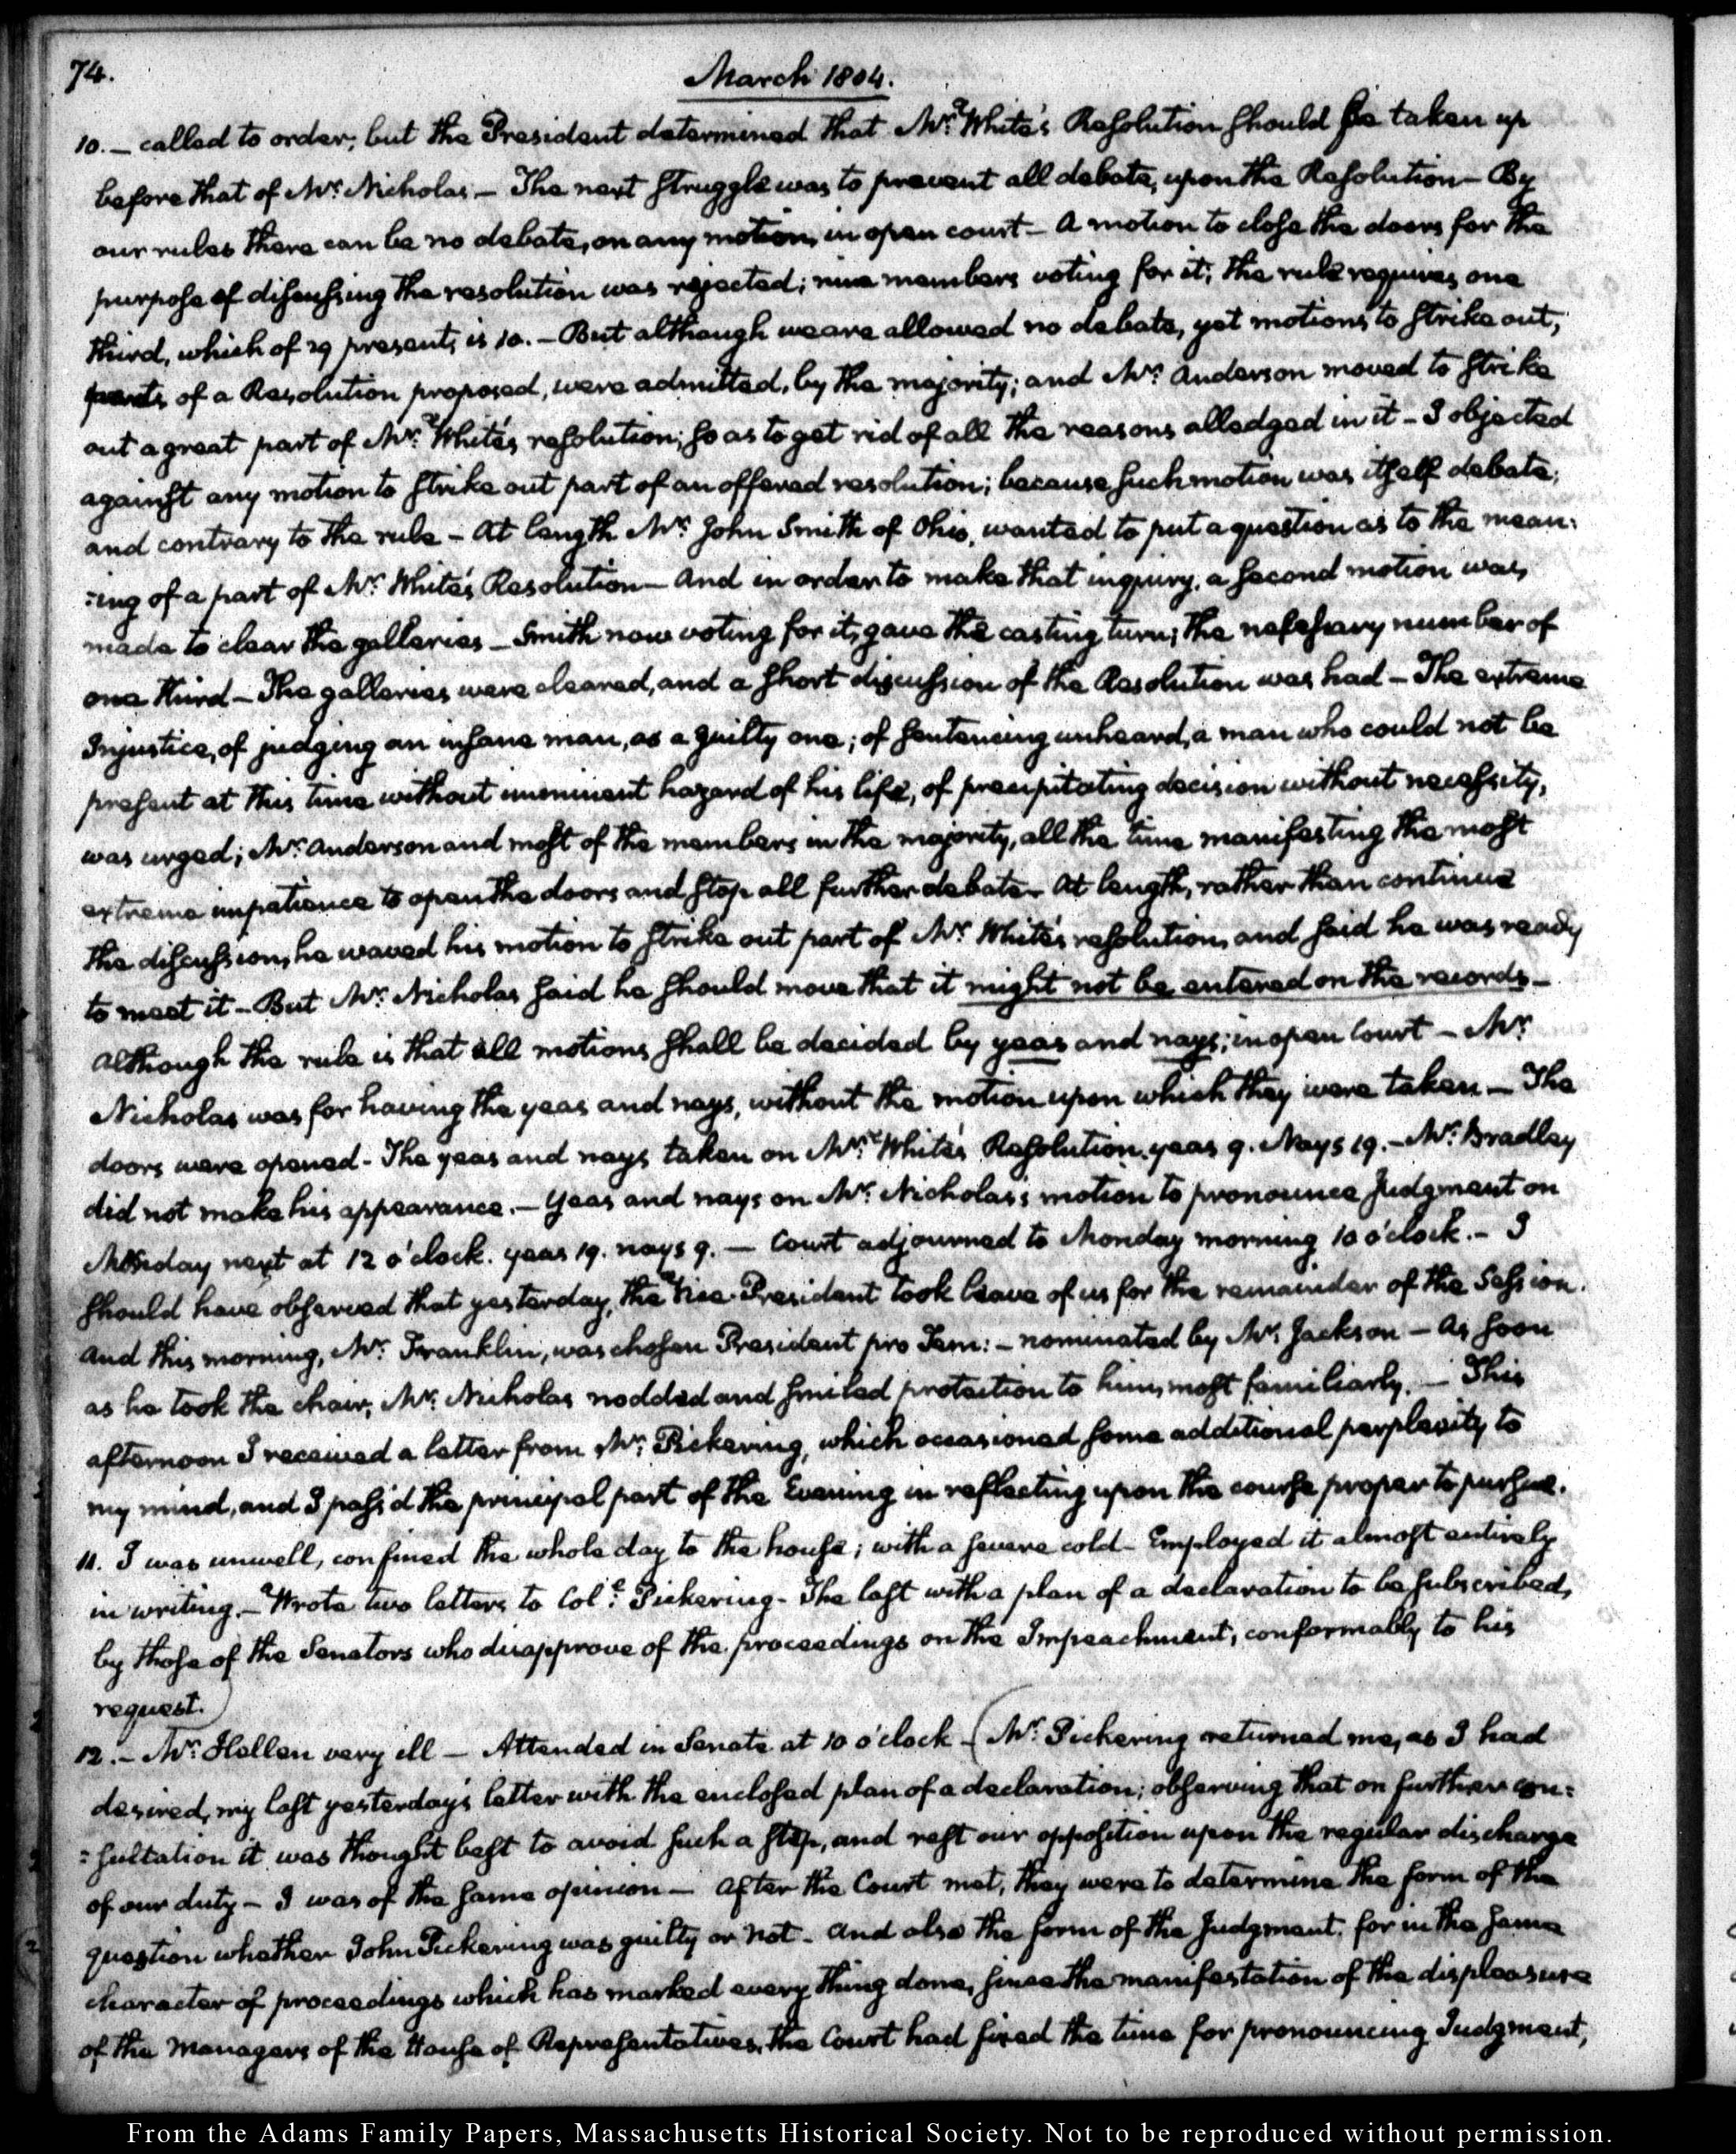 74.
March 1804.
10. — called to order; but the President determined that Mr. White's Resolution should be taken up
before that of Mr. Nicholas — The next struggle was to prevent all debate, upon the Resolution — By
our rules there can be no debate, on any motion, in open court — A motion to close the doors for the
purpose of discussing the resolution was rejected; nine members voting for it; the rule requires one
third, which of 29 present, is 10. — But although we are allowed no debate, yet motions to strike out,
parts of a Resolution proposed, were admitted, by the majority; and Mr. Anderson moved to strike
out a great part of Mr. White's resolution; so as to get rid of all the reasons alledged in it — I objected
against any motion to strike out part of an offered resolution; because such motion was itself debate;
and contrary to the rule — At length Mr. John Smith of Ohio, wanted to put a question as to the mean:
:ing of a part of Mr. White's Resolution — And in order to make that inquiry, a second motion was,
made to clear the galleries — Smith now voting for it, gave the casting turn; the necessary number of
one third — The galleries were cleared, and a short discussion of the Resolution was had — The extreme
Injustice, of judging an insane man, as a guilty one; of sentencing unheard, a man who could not be
present at this time without imminent hazard of his life, of precipitating decision without necessity,
was urged; Mr. Anderson and most of the members in the majority, all the time manifesting the most
extreme impatience to open the doors and stop all further debate — At length, rather than continue
the discussion, he waved his motion to strike out part of Mr. White's resolution, and said he was ready
to meet it — But Mr. Nicholas said he should move that it might not be entered on the records —
Although the rule is that all motions shall be decided by yeas and nays; in open Court — Mr.
Nicholas was for having the yeas and nays, without the motion upon which they were taken — The
doors were opened — The yeas and nays taken on Mr. White's Resolution. yeas 9. Nays 19. — Mr. Bradley
did not make his appearance. — Yeas and nays on Mr. Nicholas's motion to pronounce Judgment on
Monday next at 12 o'clock. yeas 19. nays 9. — Court adjourned to Monday morning 10 o'clock. — I
should have observed that yesterday, the Vice-President took leave of us for the remainder of the Session.
And this morning, Mr. Franklin, was chosen President pro Tem: — nominated by Mr. Jackson — As soon
as he took the chair, Mr. Nicholas nodded and smiled protection to him, most familiarly. — This
afternoon I received a letter from Mr. Pickering, which occasioned some additional perplexity to
my mind, and I pass'd the principal part of the Evening in reflecting upon the course proper to pursue.
11. I was unwell, confined the whole day to the house; with a severe cold — Employed it almost entirely
in writing. — Wrote two letters to Col.: Pickering — The last with a plan of a declaration to be subscribed,
by those of the Senators who disapprove of the proceedings on the Impeachment, conformably to his
request.)
12. — Mr. Hellen very ill — Attended in Senate at 10 o'clock — (Mr. Pickering returned me, as I had
desired, my last yesterday's letter with the enclosed plan of a declaration; observing that on further con:
:sultation it was thought best to avoid such a step, and rest our opposition upon the regular discharge
of our duty — I was of the same opinion — After the Court met, they were to determine the form of the
question whether John Pickering was guilty or not — And also the form of the Judgment. for in the same
character of proceedings which has marked every thing done, since the manifestation of the displeasure
of the Managers of the House of Representatives, the Court had fixed the time for pronouncing Judgment,
From the Adams Family Papers, Massachusetts Historical Society. Not to be reproduced without permission.